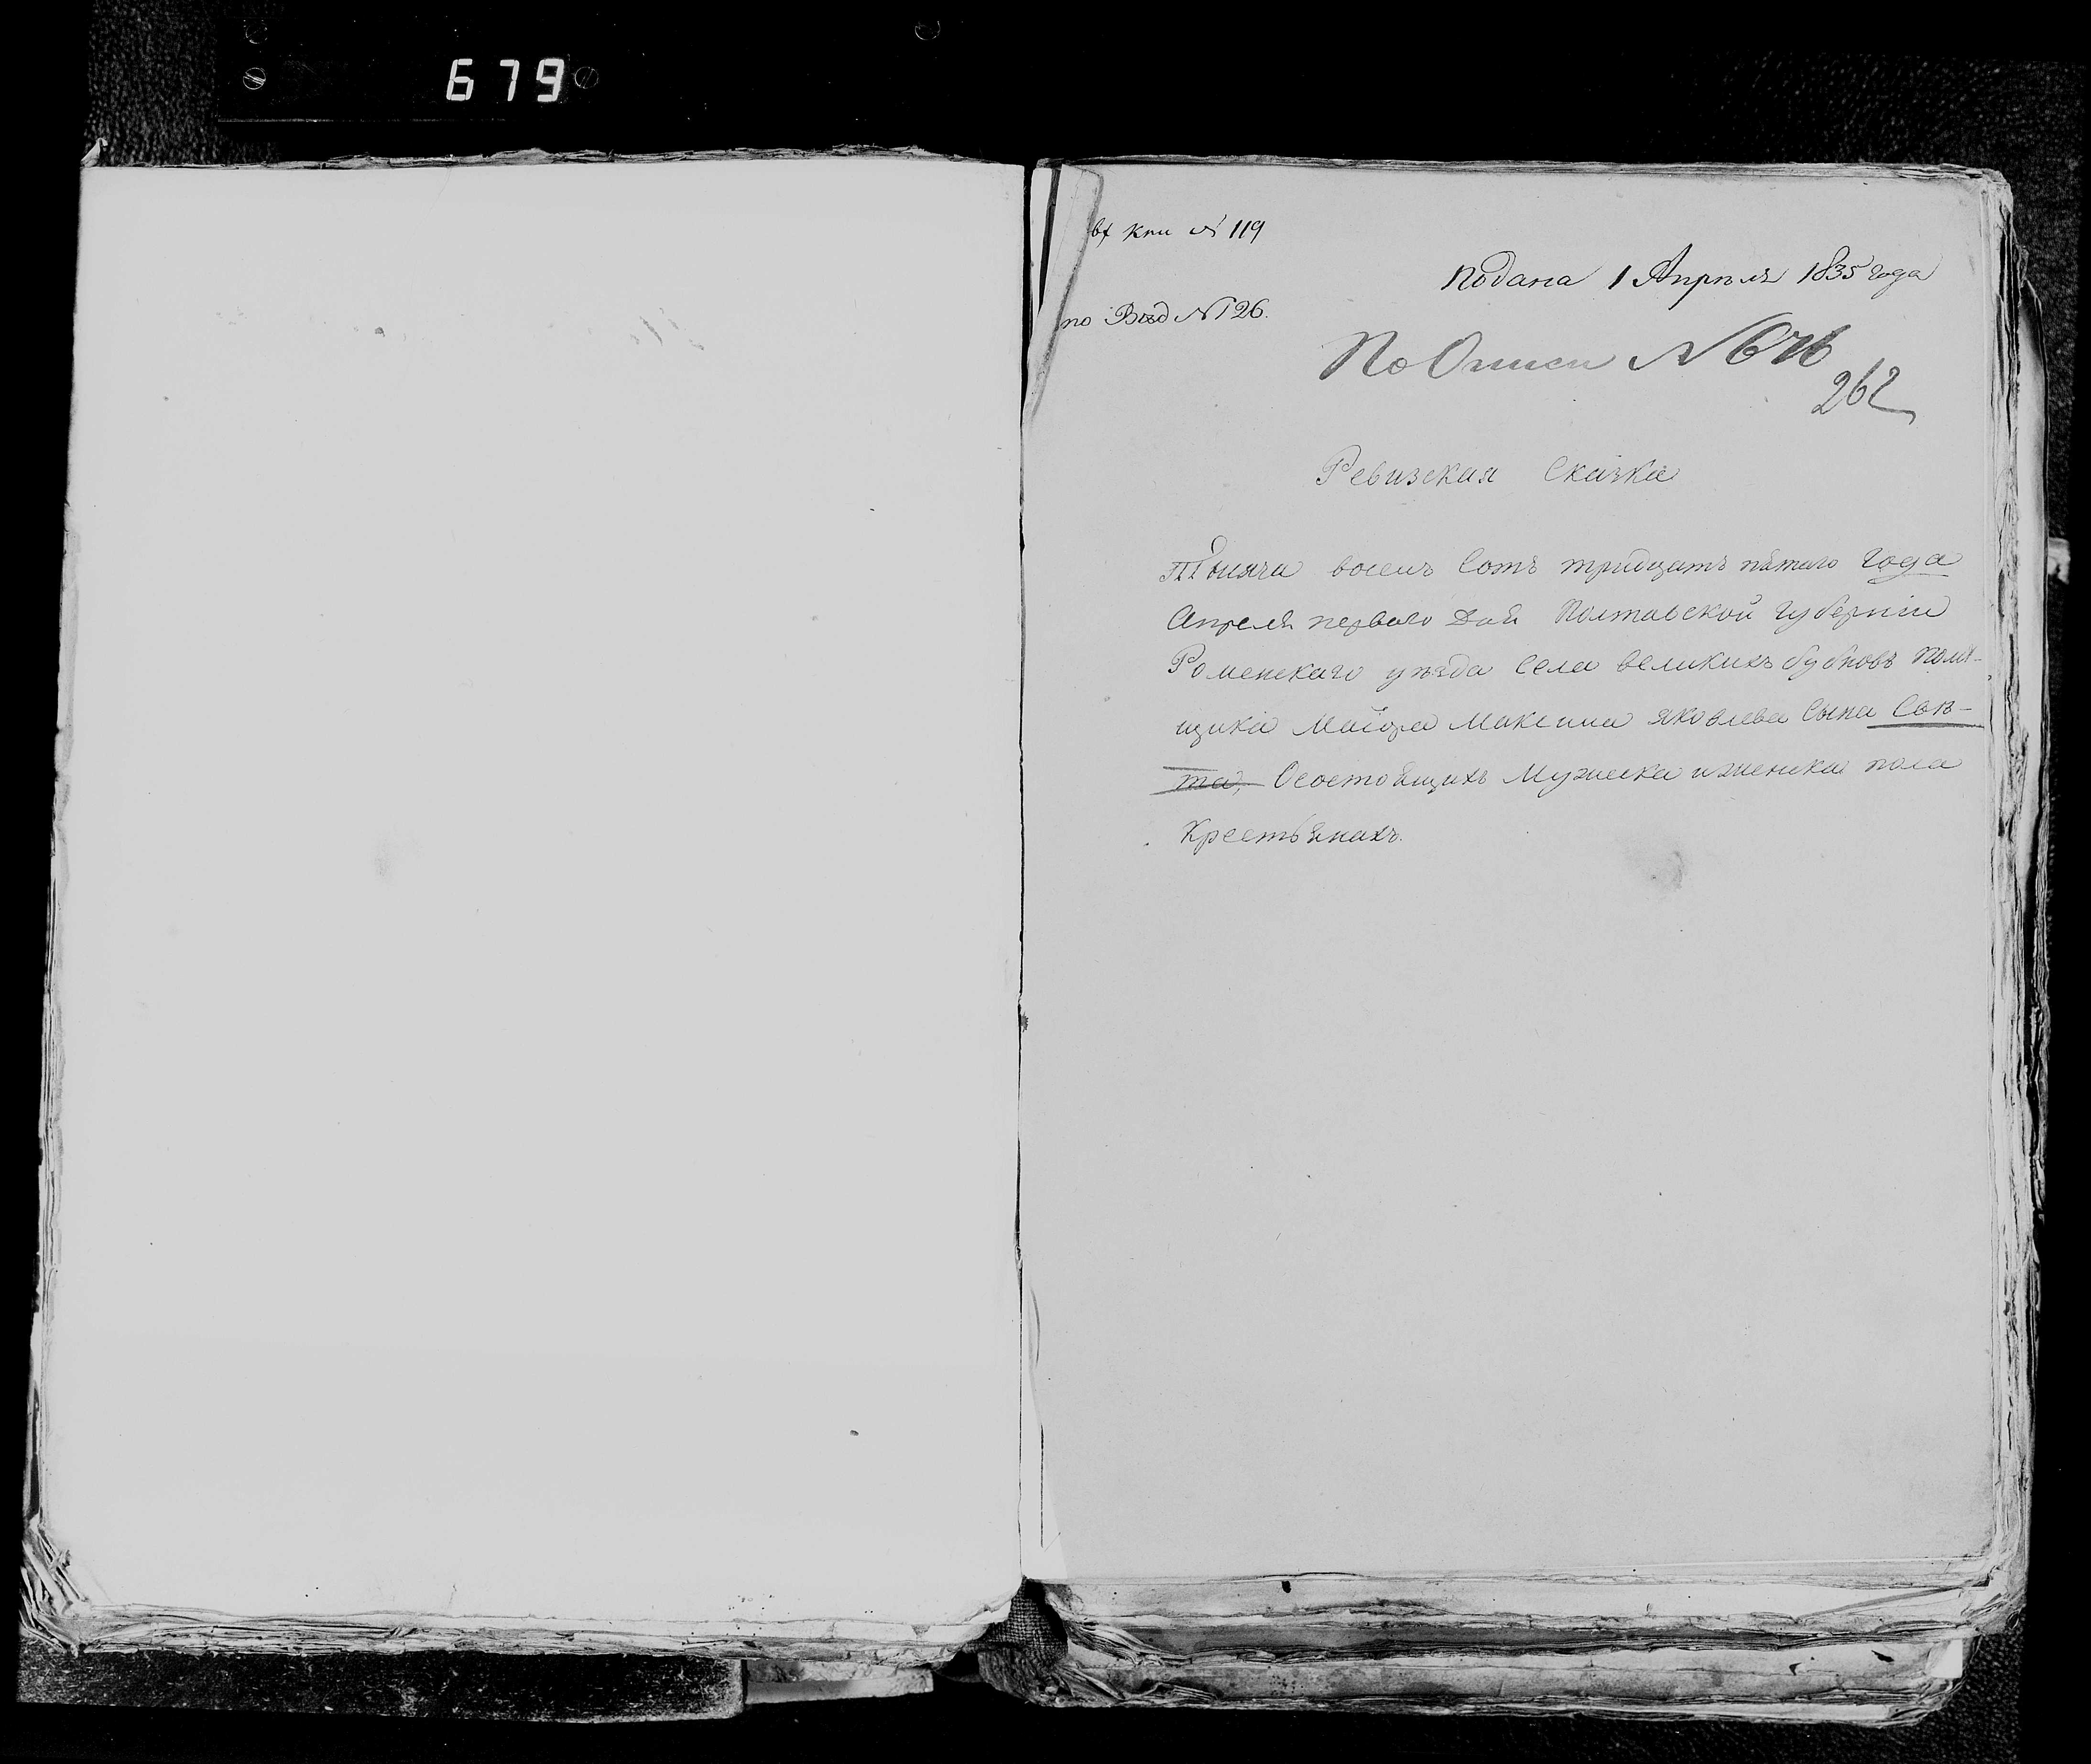 679
вх кни № 119
Подана 1 Апрѣля 1835 года
по Вѣд № 126.
По Описи № 676
262
Ревизская Сказка
Тысяча восемъ Сотъ тридцатъ пятаго года
Апреля перваго дня Полтавской Губерніи
Роменскаго уѣзда Села великихъ бубновъ помѣ-
щика Маіора Максима яковлева Сына Свѣ-
та, Осостоящихъ Мужеска иженска пола
Крестьянахъ.